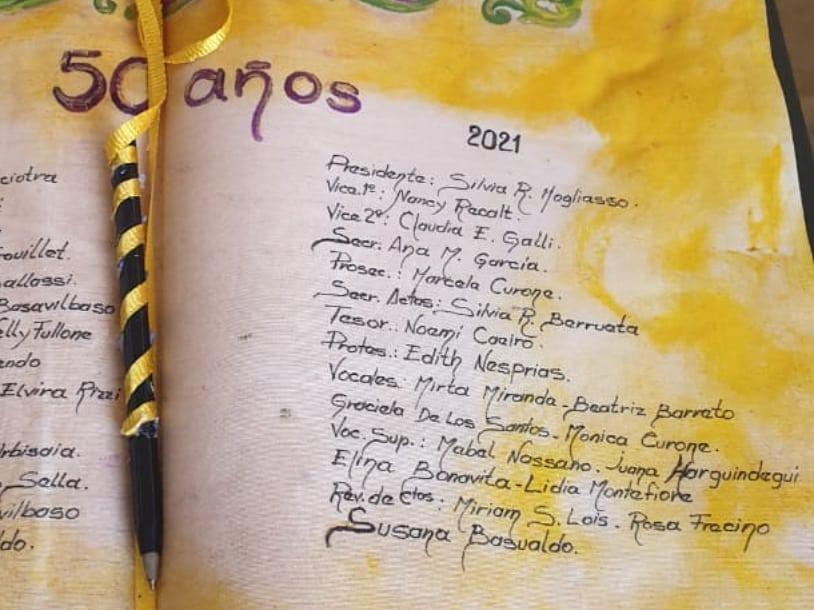 50 años
ciotra
Fouillet.
allassi.
Basavilbaso
elly Fullone
ando
Elvira Rizzi
Urbisaia.
Salla.
vilbaso
do.
2021
Presidente: Silvia R. Mogliasso.
Vice.1º: Nancy Recalt.
Vice 2º: Claudia E. Galli.
Secr: Ana M. García.
Prosec.: Marcela Curone.
Secr. Actas: Silvia R. Berrueta
Tesor.: Noemi Coeiro.
Protes.: Edith Nesprias.
Vocales: Mirta Miranda - Beatriz Barreto
Graciela De Los Santos - Monica Curone.
Voc. Sup.: Mabel Nossano. Juana Harguindegui
Elina Bonavita - Lidia Montefiore
Rev. de Ctas: Miriam S. Lois. Rosa Frecino
Susana Basualdo.